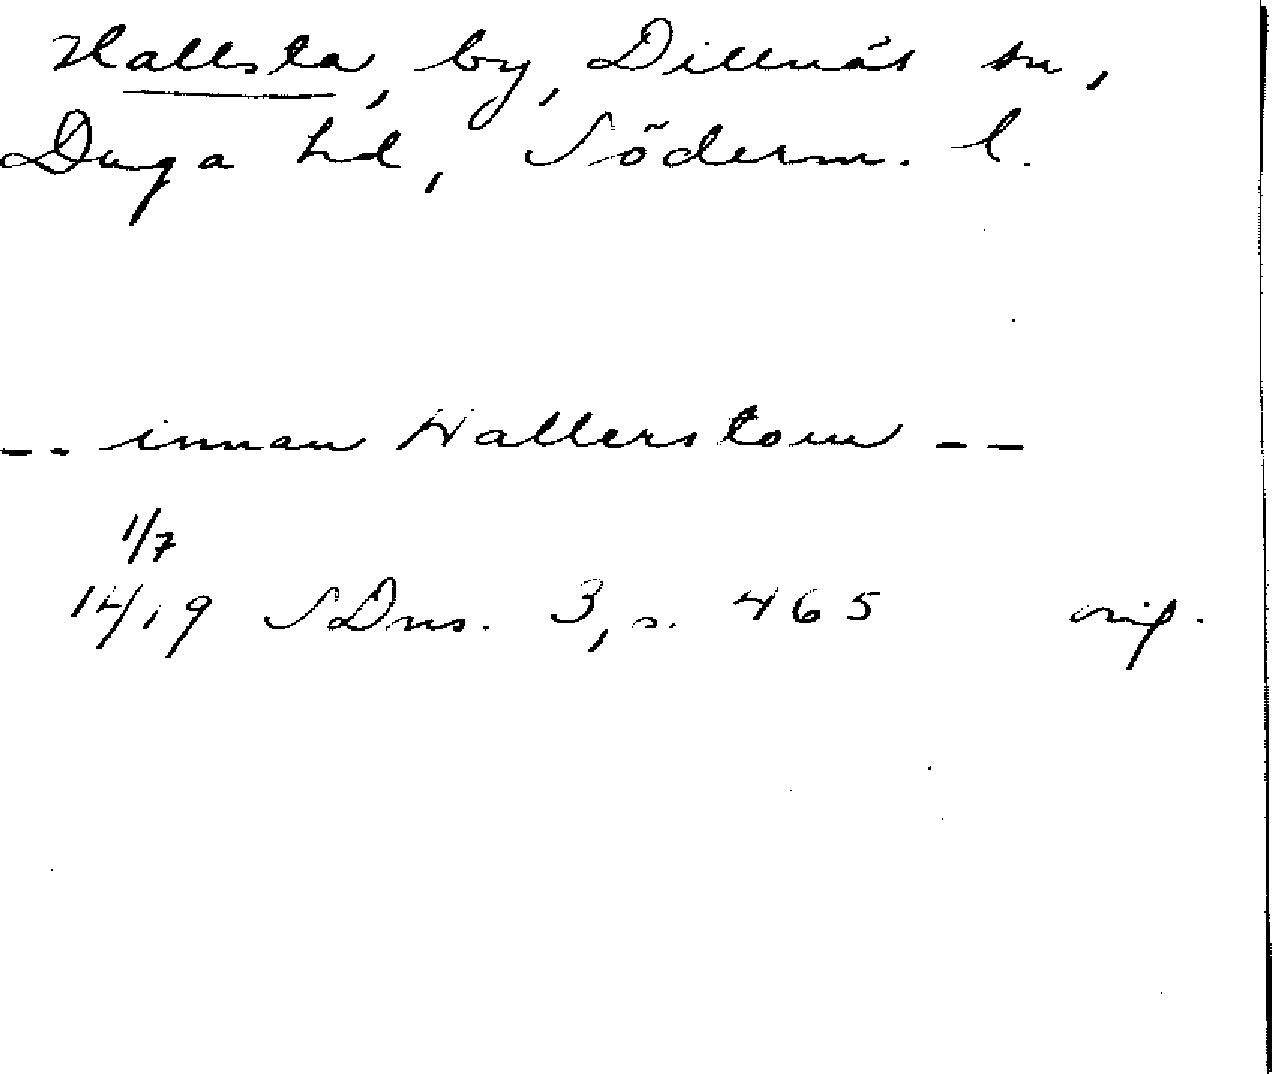 Hallsta, by, Dillnäs sn,
Daga hd, Söderm. l.
-- innan Hallerstom --
1/7
1419 SDns. 3, s. 465 orig.